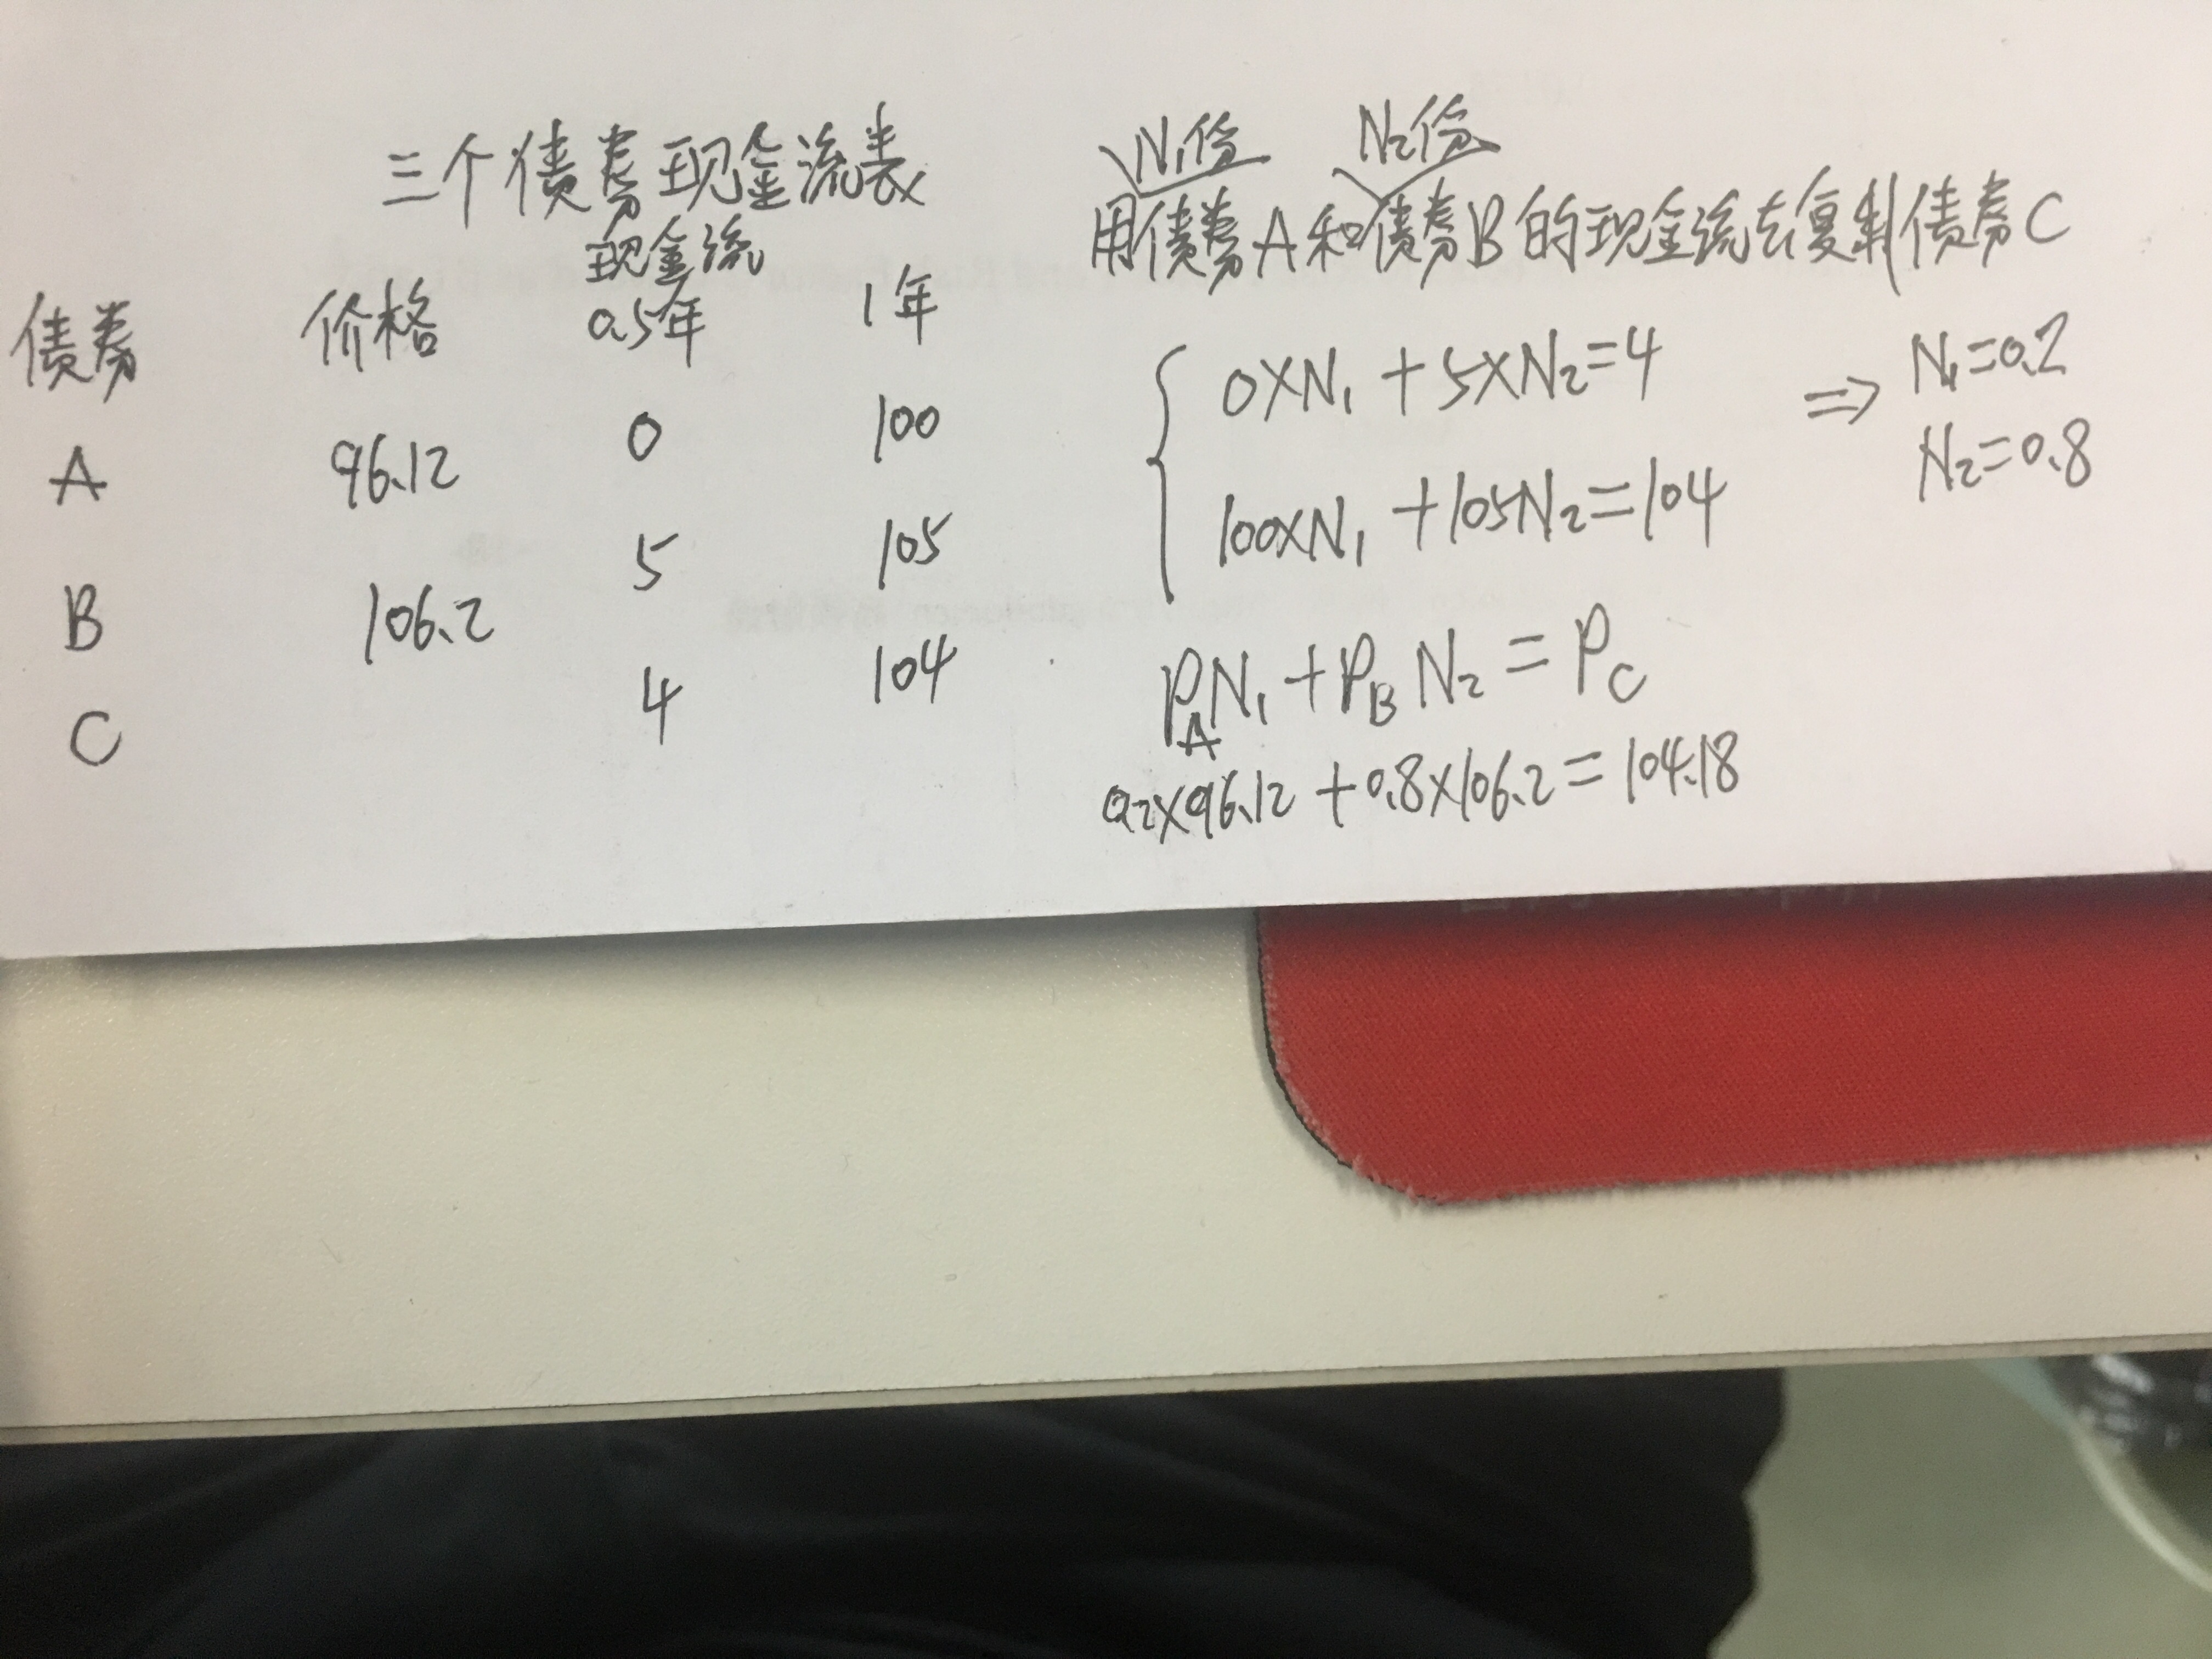 三个债券现金流表
现金流
债券 价格 0.5年 1年
A 96.12 0 100
B 106.2 5 105
C 4 104
N₁份 N₂份
用债券A和债券B的现金流去复制债券C
0×N₁+5×N₂=4
100×N₁+105N₂=104
⇒ N₁=0.2
N₂=0.8
P_A N₁+P_B N₂=P_C
0.2×96.12+0.8×106.2=104.18